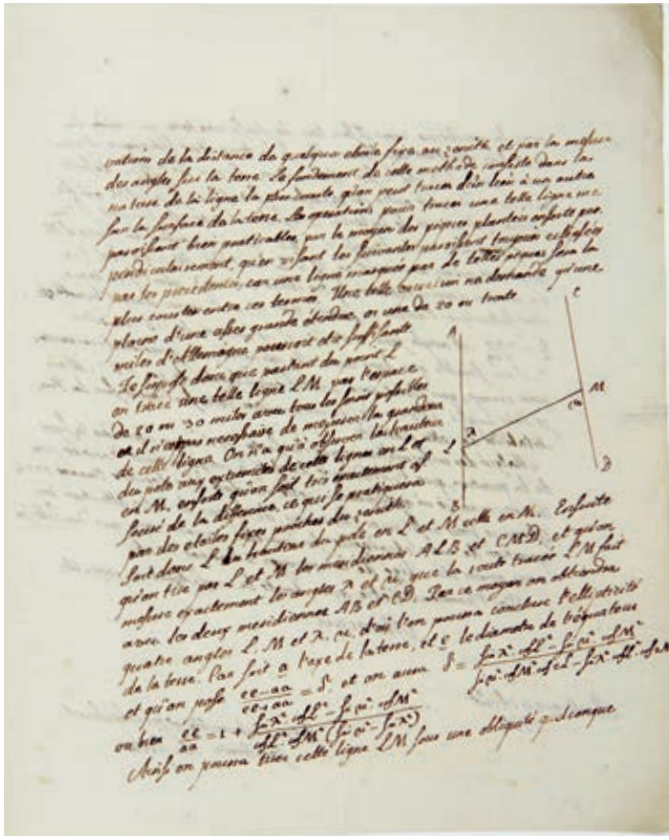 vations de la distance de quelques étoiles fixes au zenith, et par la mesure
des angles sur la terre. Le fondement de cette methode consiste dans la
nature de la ligne la plus droite qu'on peut tracer d'un lieu à un autre
sur la surface de la terre. Les operations pour tracer une telle ligne me
paroissent bien practicables, par le moyen des piques plantées ensorte per
pendiculairement, qu'en visant les suivantes paroissent toujours
par les precedentes, car une ligne marquée par de telles piques sera la
plus courte entre ces termes. Une telle operation ne demande qu'une
plaine d'une asses grande étendue, ou une de 20 ou trente
miles d'Allemagne pourroit etre suffisante.
Je suppose donc que partant du point L
on trace une telle ligne LM par l'espace
de 20 ou 30 miles avec tous les soins possibles
et il n'est pas necessaire de mesurer la grandeur
de cette ligne. On n'a qu'à observer la hauteur
du pole aux extremités de cette ligne en L et
en M, ensorte qu'on soit tres exactement as
seuré de la difference, ce que se pratiquera
par des etoiles fixes proches du zenith.
Soit donc L la hauteur du pole en L et M celle en M. Ensuite
qu'on tire par L et M les meridiennes ALB et CMD, et qu'on
mesure exactement les angles λ et μ, que la route tracée LM fait
avec les deux meridiennes AB et CD. Par ce moyen on obtiendra
quatre angles L, M et λ, μ, d'où l'on pourra conclure l'ellipticité
de la terre. Car soit a l'axe de la terre, et e le diametre de l'équateur
et qu'on pose (ee-aa)/(ee+aa) = δ, et on aura δ =
ou bien ee/aa = 1 +
Ainsi on pourra tirer cette ligne LM sous une obliquité quelconque
A
C
M
μ
λ
L
B
D